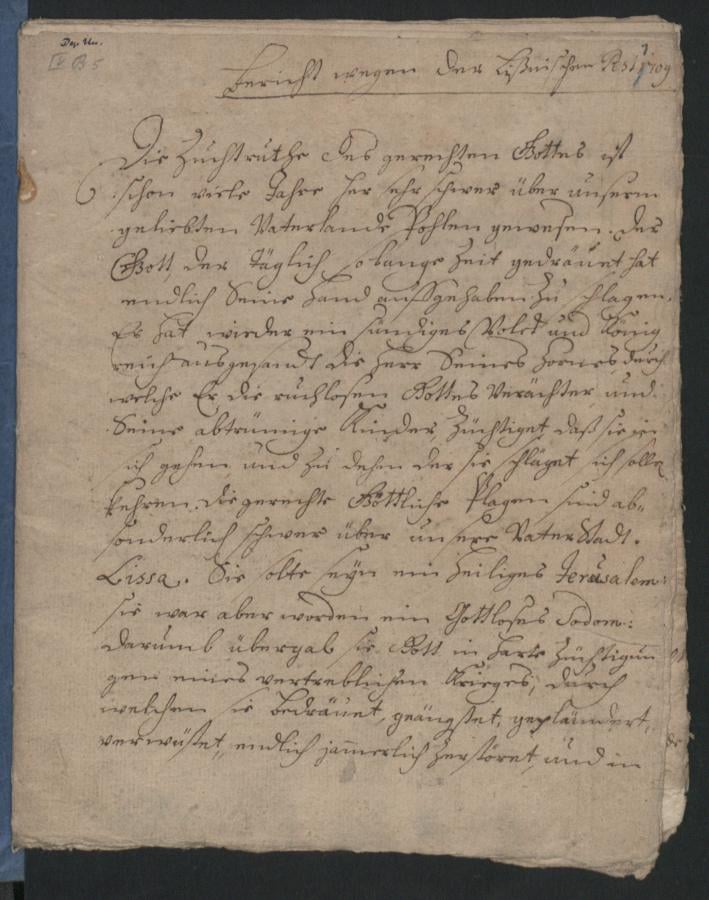 Dep. Un.
IX B 5
1
Bericht wegen der Lißnischen Pest 1709
Die Zuchtruthe des gerechten Gottes ist
schon viele Jahre her sehr schwer über unserm
geliebten Vaterlande Pohlen gewesen. Der
Gott, der täglich, so lange Zeit gedräuet hat
endlich Seine Hand auffgehaben zu schlagen.
Er hat wieder ein sündiges Volck und König
reich ausgesandt die Seines Zornes durch
welche Er die ruchlosen Gottes Verächter und
Seine abtrünnige Kinder züchtiget daß sie in
sich gehen und zu dehm der sie schläget, sich sollen
kehren. Die gerechte Göttliche Plagen sind ab-
sonderlich schwer über unsere Vater Stadt.
Lissa. Sie solte seyn ein heiliges Jerusalem:
sie war aber worden ein Gottloses Sodom:
Darumb übergab sie Gott in harte Züchtigun
gen eines verterblichen Krieges, durch
welchen sie bedräuet, geängstet, geplündert,
verwüstet, endlich jämerlich zerstöret, und in